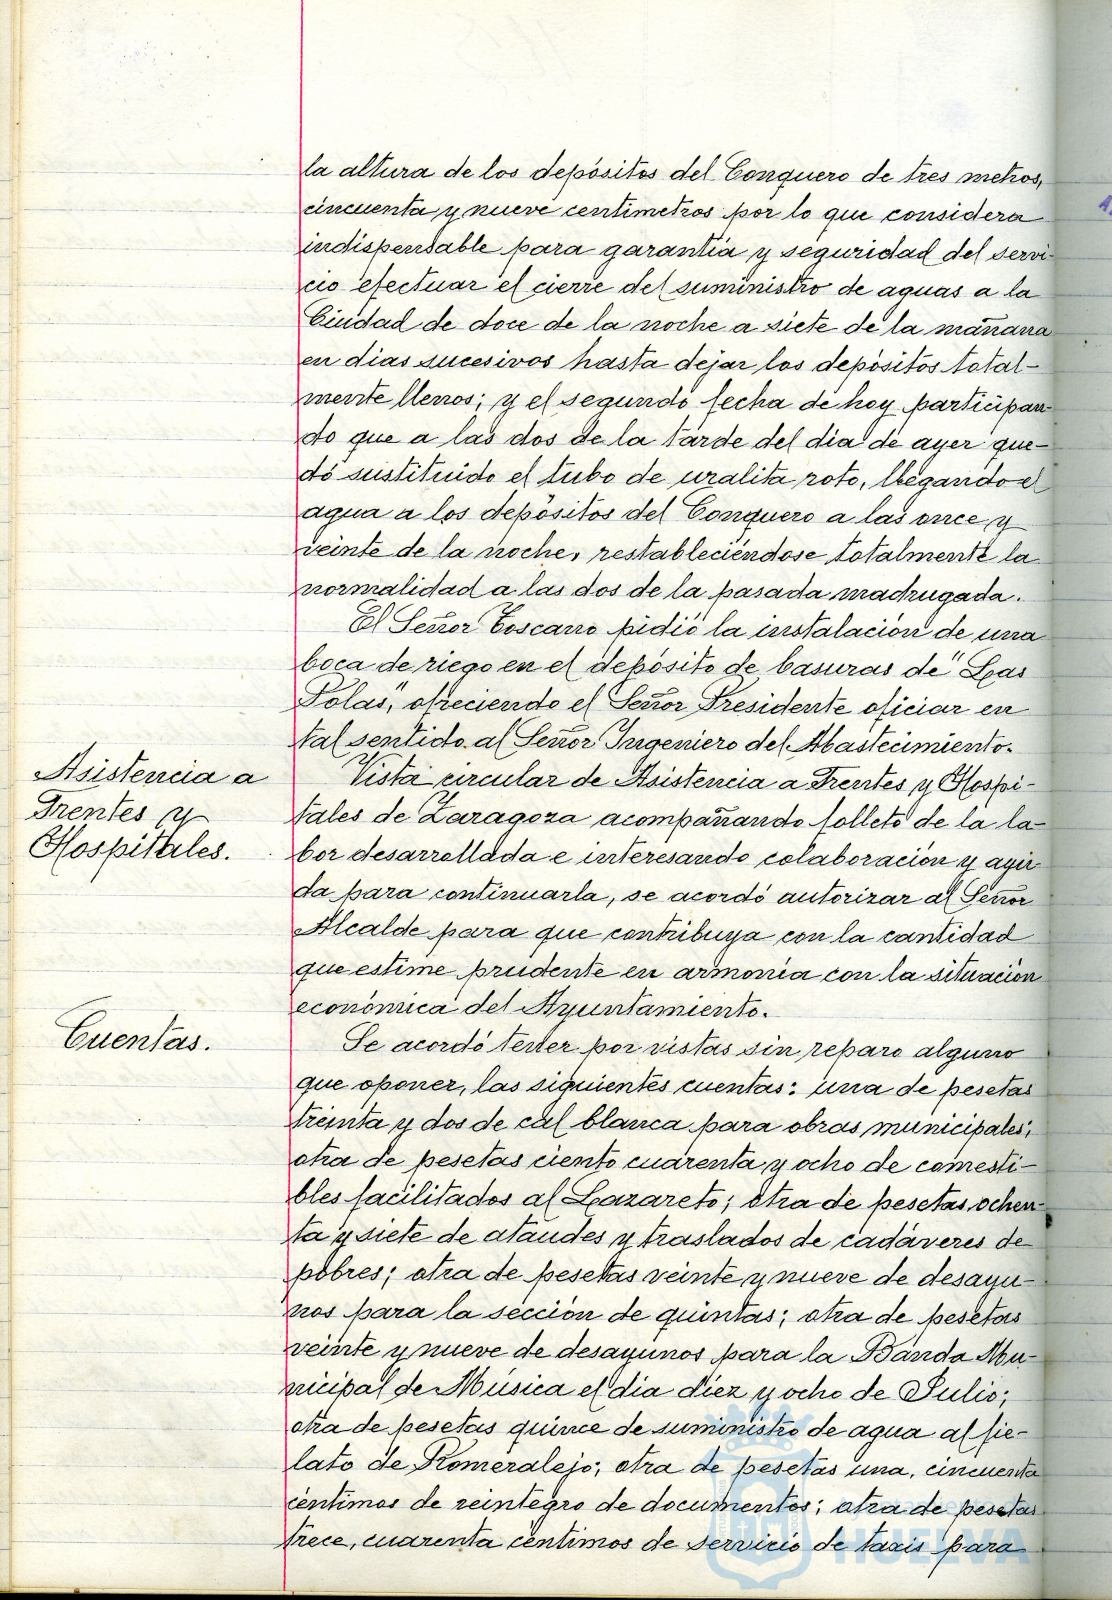 la altura de los depósitos del Conquero de tres metros,
cincuenta y nueve centimetros por lo que considera
indispensable para garantía y seguridad del servi-
cio efectuar el cierre del suministro de aguas a la
Ciudad de doce de la noche a siete de la mañana
en dias sucesivos hasta dejar los depósitos total-
mente llenos; y el segundo fecha de hoy participan-
do que a las dos de la tarde del dia de ayer que-
dó sustituido el tubo de uralita roto, llegando el
agua a los depósitos del Conquero a las once y
veinte de la noche, restableciéndose totalmente la
normalidad a las dos de la pasada madrugada.
El Señor Toscano pidió la instalación de una
boca de riego en el depósito de basuras de "Las
Polas", ofreciendo el Señor Presidente oficiar en
tal sentido al Señor Ingeniero del Abastecimiento.
Asistencia a
Frentes y
Hospitales.
Vista circular de Asistencia a Frentes y Hospi-
tales de Zaragoza acompañando folleto de la la-
bor desarrollada e interesando colaboración y ayu-
da para continuarla, se acordó autorizar al Señor
Alcalde para que contribuya con la cantidad
que estime prudente en armonía con la situación
económica del Ayuntamiento.
Cuentas.
Se acordó tener por vistas sin reparo alguno
que oponer, las siguientes cuentas: una de pesetas
treinta y dos de cal blanca para obras municipales;
otra de pesetas ciento cuarenta y ocho de comesti-
bles facilitados al Lazareto; otra de pesetas ochen-
ta y siete de ataudes y traslados de cadáveres de
pobres; otra de pesetas veinte y nueve de desayu-
nos para la sección de quintas; otra de pesetas
veinte y nueve de desayunos para la Banda Mu-
nicipal de Música el dia diez y ocho de Julio;
otra de pesetas quince de suministro de agua al fie-
lato de Romeralejo; otra de pesetas una, cincuenta
céntimos de reintegro de documentos; otra de pesetas
trece, cuarenta céntimos de servicio de taxis para
HUELVA